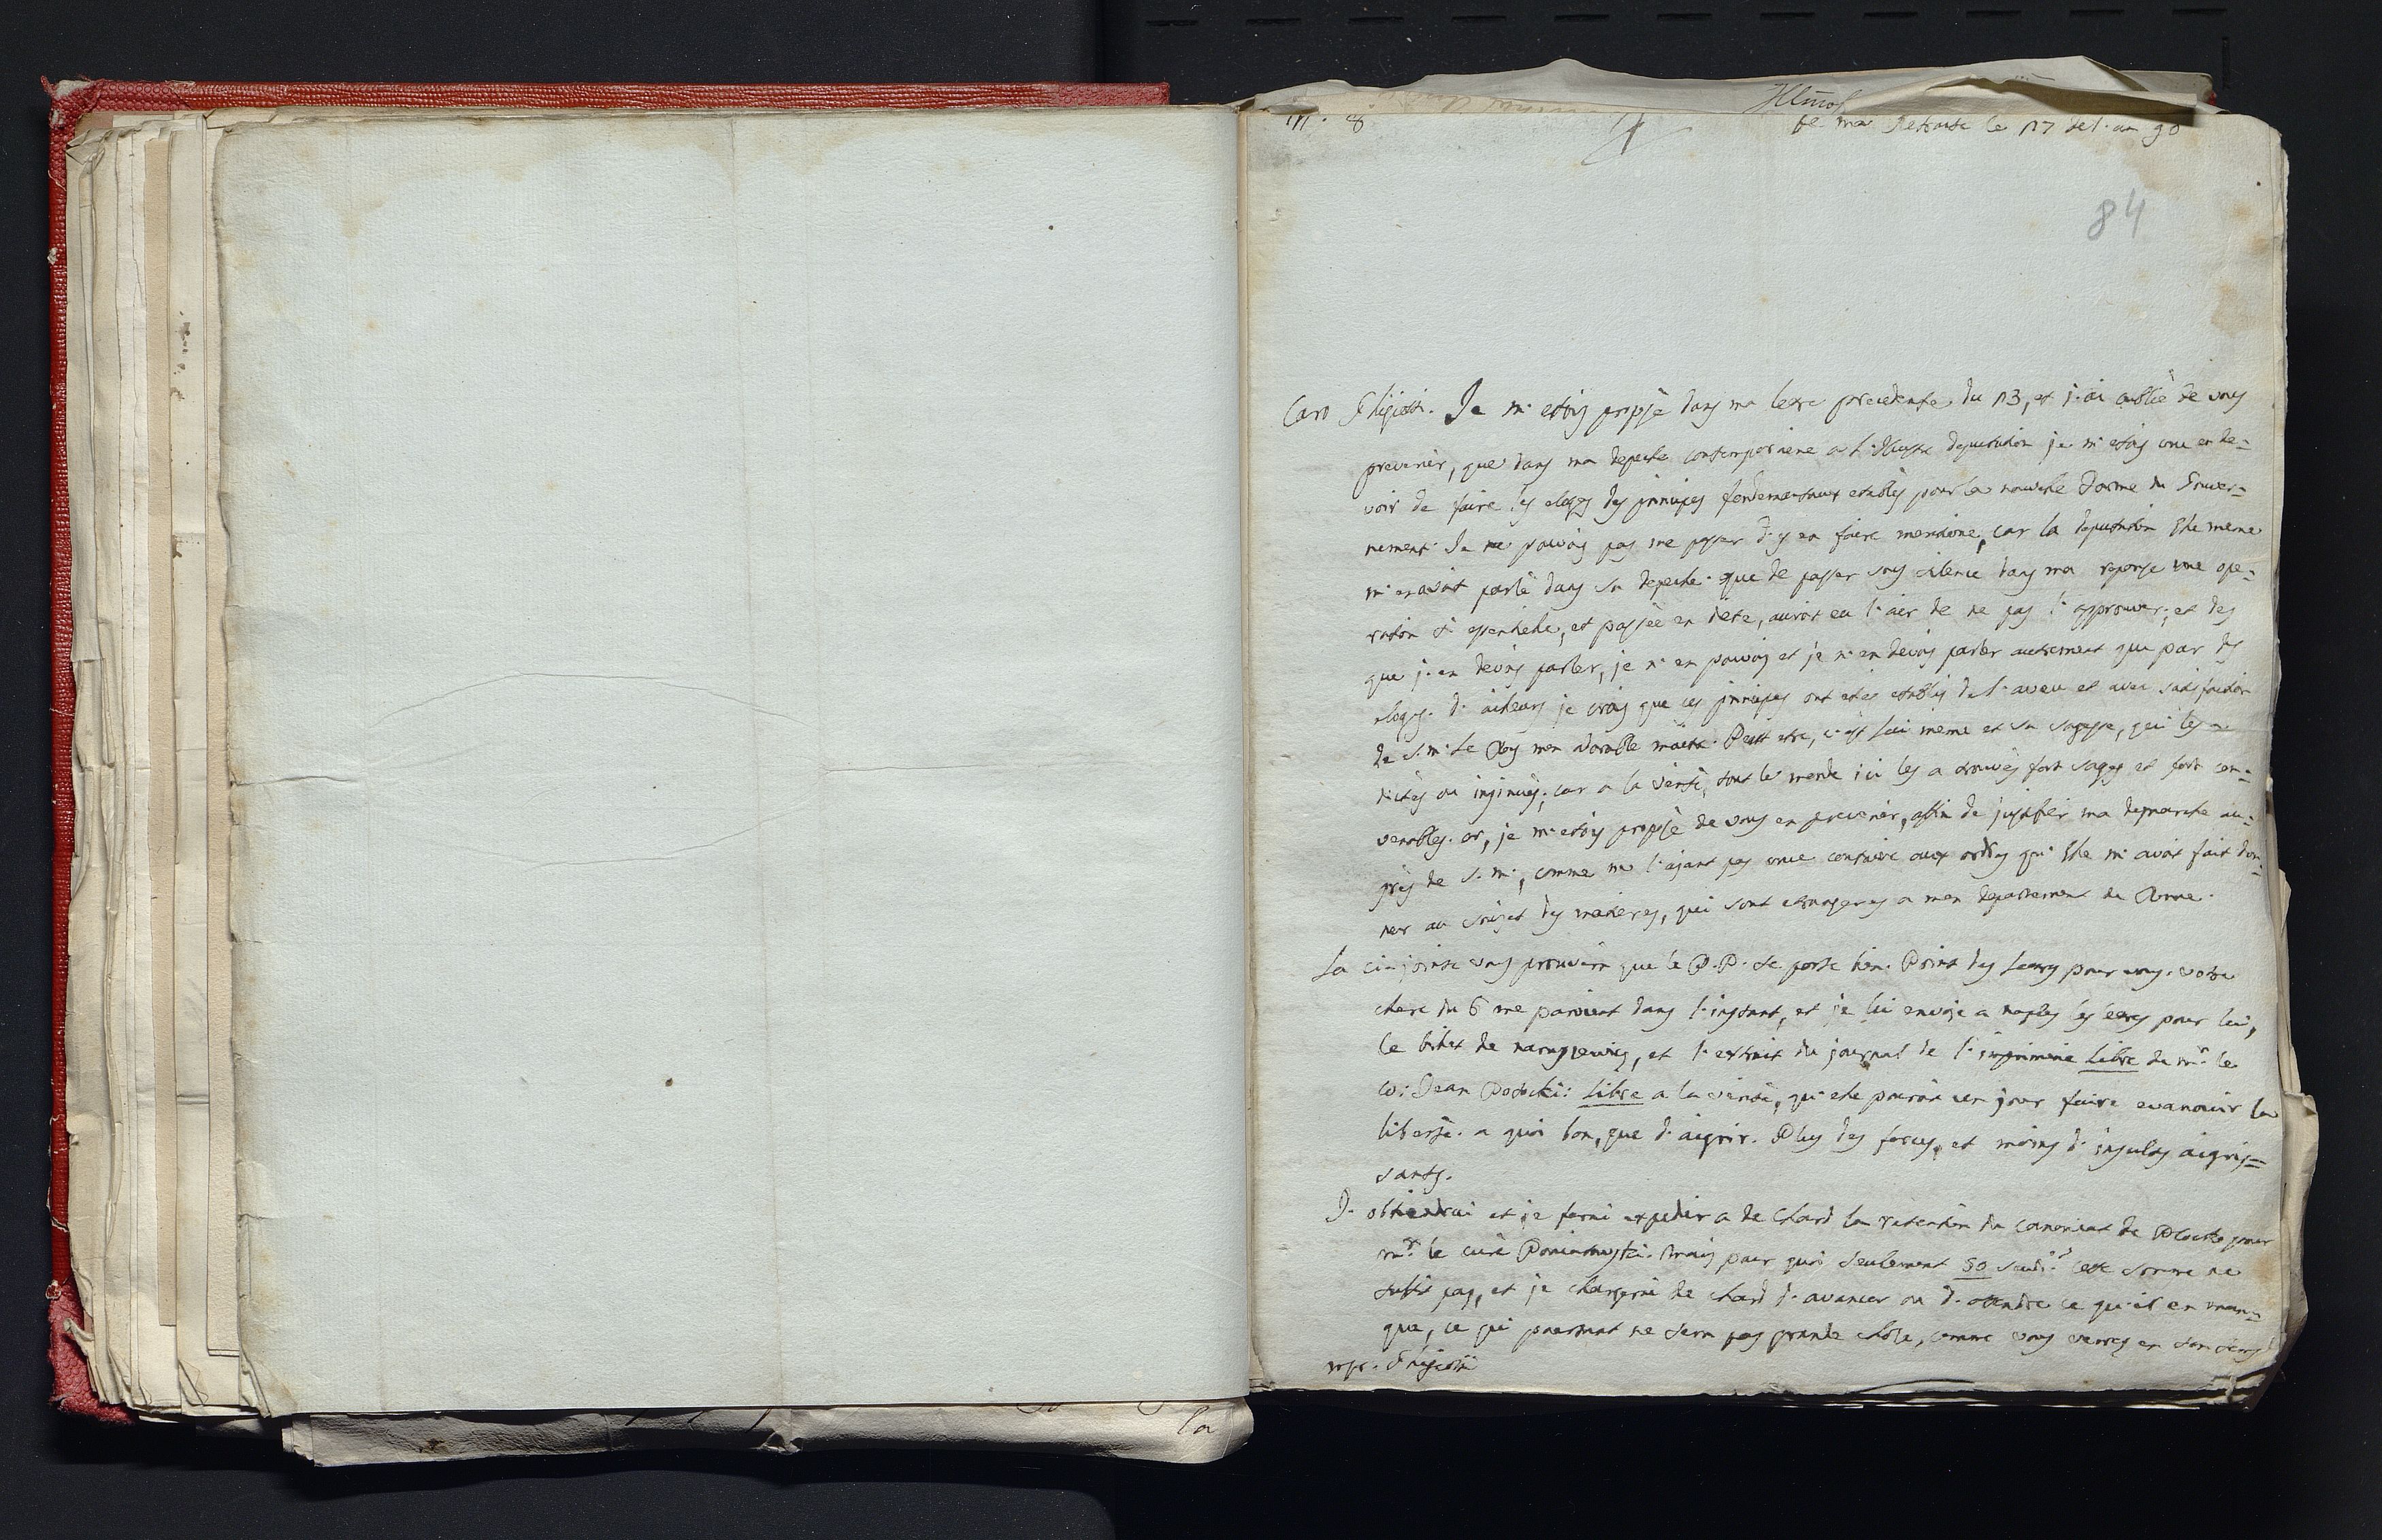 de ma Retraite le 17 del'an 90
84
Caro Ghigiotti. Je m'etois proposè dans ma letre precedente du 13, et j'ai oublié de vous
prevenir, que dans ma depeche contemporaine a l'Illustre deputation je m'etois crue en de=
voir de faire les eloges des principes fondementaux etablis pour la nouvelle Forme du Gouver=
nement. Je ne pouvois pas me passer d'y en faire mentione, car la deputation Elle meme
m'en avoit parlè dans sa depeche. que de passer sous silence dans ma reponse une ope=
ration si essentielle, et passée en diete, auroit eu l'air de ne pas l'approuver; et des
que j'en devois parler, je n'en pouvois et je n'en devois parler autrement que par des
eloges. d'ailleurs je crois que ces principes ont etès etablis de l'aveu et avec satisfaction
de S. M. Le Roy mon adorable maitre. Peutt etre, c'est Lui meme et sa sagesse, qui les a
dictès ou insinuès; car a la veritè, tout le monde ici les a trouvès fort sages et fort con=
venables. or, je m'etois proposè de vous en prevenir, affin de justifier ma demarche au=
près de S. M., comme ne l'ajant pas crue contraire aux ordres qu'Elle m'avoit fait don=
ner au sujet des matieres, qui sont etrangeres a mon departement de Rome.
La ci-jointe vous prouvera que le P. P. se porte bien. Point des Leurs pour vous. votre
chere du 6 me parvient dans l'instant, et je lui envoje a naples les leures pour lui,
le billet de naruszewicz, et l'extrait du journal de l'imprimerie Libre de Mr. le
co: Jean Potocki: Libre a la veritè, qu'elle pouroit un jour faire evanouir la
libertè. a quoi bon, que d'aigrir. Plus des forces, et moins d'insultes aigris=
santes.
J'obtiendrai et je ferai expedier a de Chard la retention du canonicat de Plocko pour
Mr. le curè Poniatowski. Mais pour quoi seulement 30 scudi? cette somme ne
suffit pas, et je chargerai de chard d'avancer ou d'attendre ce qu'il en man=
que, ce qui pourtant ne sera pas grande chose, comme vous verres en son tems
Mgr. Ghigiotti
La